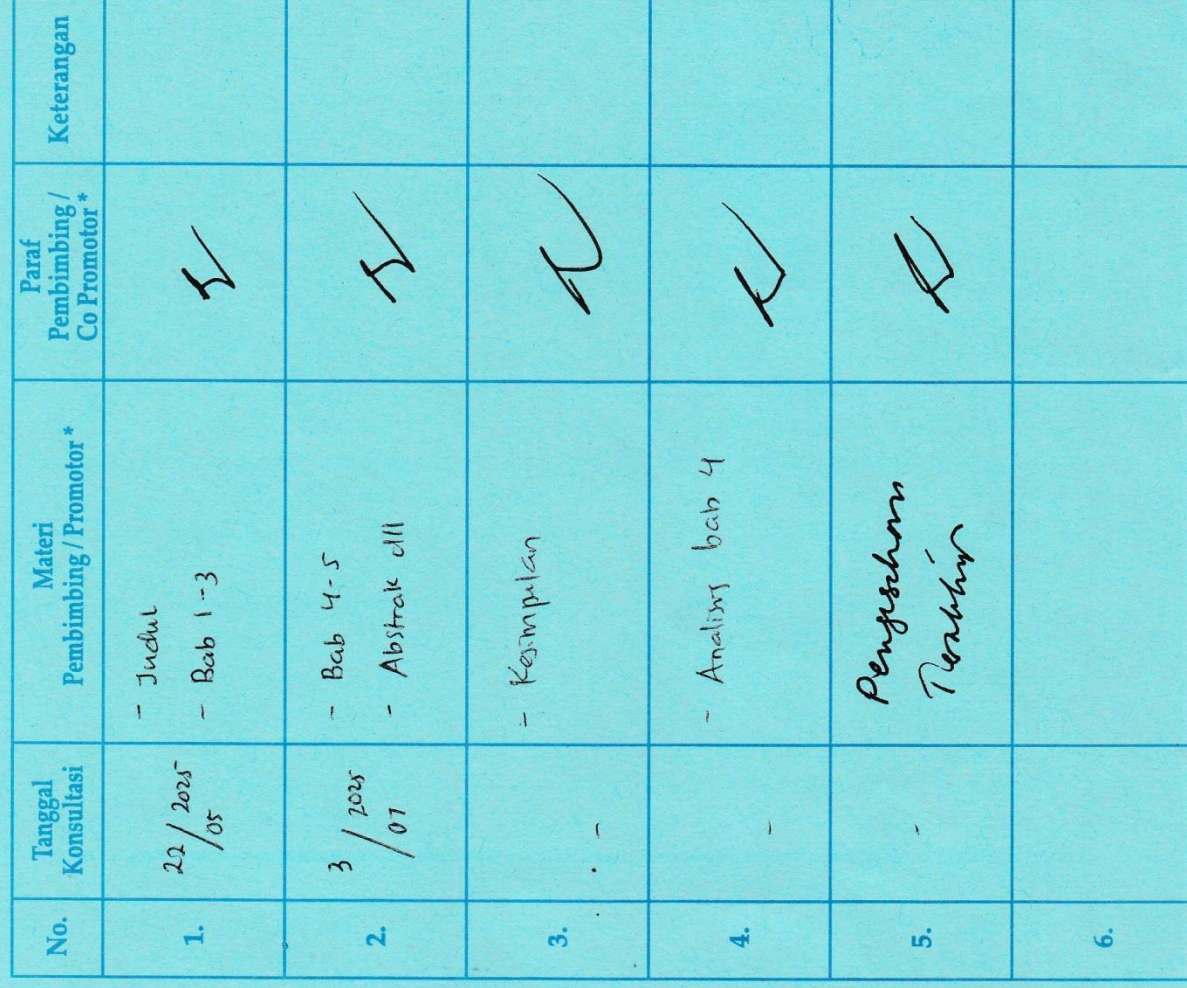 No.
Tanggal
Konsultasi
Materi
Pembimbing / Promotor *
Paraf
Pembimbing /
Co Promotor *
Keterangan
1.
22/2025
05
- Judul
- Bab 1-3
2.
3/2025
07
- Bab 4-5
- Abstrak dll
3.
-
- Kesimpulan
4.
-
- Analisis bab 4
5.
-
Pengesahan
Terakhir
6.